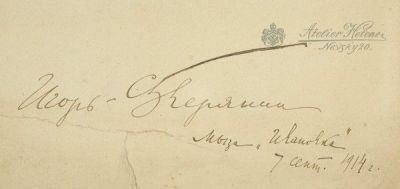 Atelier Helene
Nevsky 20.
Игорь-Северянин
Мыза „Ивановка“
7 сент. 1914 г.